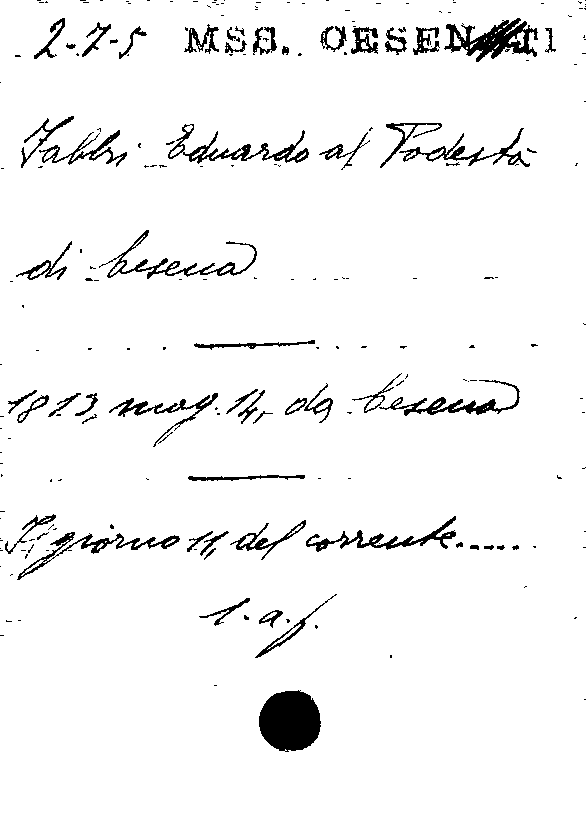 2-7-5 MSS. CESENATI
Fabbri Eduardo al Podestà
di Cesena
1813, mag. 14, da Cesena
Il giorno 11, del corrente.....
l.a.f.